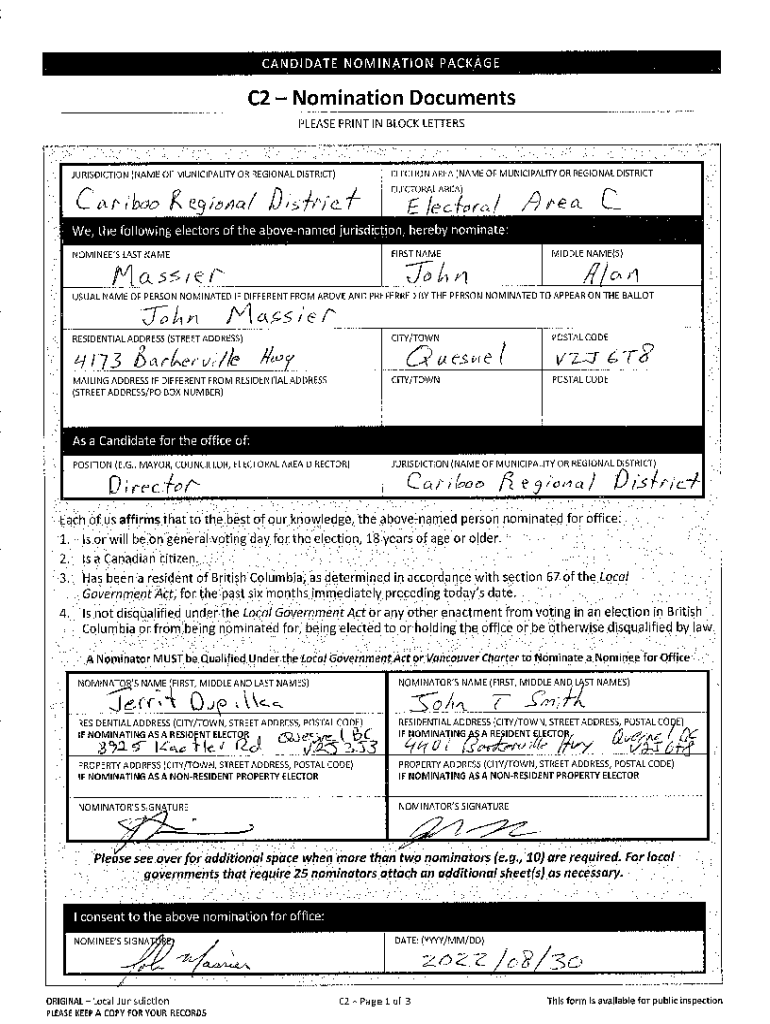 CANDIDATE NOMINATION PACKAGE
C2 – Nomination Documents
PLEASE PRINT IN BLOCK LETTERS
JURISDICTION (NAME OF MUNICIPALITY OR REGIONAL DISTRICT)
Cariboo Regional District
ELECTION AREA (NAME OF MUNICIPALITY OR REGIONAL DISTRICT
ELECTORAL AREA)
Electoral Area C
We, the following electors of the above-named jurisdiction, hereby nominate:
NOMINEE'S LAST NAME
Massier
FIRST NAME
John
MIDDLE NAME(S)
Alan
USUAL NAME OF PERSON NOMINATED IF DIFFERENT FROM ABOVE AND PREFERRED BY THE PERSON NOMINATED TO APPEAR ON THE BALLOT
John Massier
RESIDENTIAL ADDRESS (STREET ADDRESS)
4173 Barkerville Hwy
CITY/TOWN
Quesnel
POSTAL CODE
V2J 6T8
MAILING ADDRESS IF DIFFERENT FROM RESIDENTIAL ADDRESS
(STREET ADDRESS/PO BOX NUMBER)
CITY/TOWN
POSTAL CODE
As a Candidate for the office of:
POSITION (E.G., MAYOR, COUNCILLOR, ELECTORAL AREA DIRECTOR)
Director
JURISDICTION (NAME OF MUNICIPALITY OR REGIONAL DISTRICT)
Cariboo Regional District
Each of us affirms that to the best of our knowledge, the above-named person nominated for office:
1. Is or will be on general voting day for the election, 18 years of age or older.
2. Is a Canadian citizen.
3. Has been a resident of British Columbia, as determined in accordance with section 67 of the Local
Government Act, for the past six months immediately preceding today's date.
4. Is not disqualified under the Local Government Act or any other enactment from voting in an election in British
Columbia or from being nominated for, being elected to or holding the office or be otherwise disqualified by law.
A Nominator MUST be Qualified Under the Local Government Act or Vancouver Charter to Nominate a Nominee for Office
NOMINATOR'S NAME (FIRST, MIDDLE AND LAST NAMES)
Jerrit
RESIDENTIAL ADDRESS (CITY/TOWN, STREET ADDRESS, POSTAL CODE)
IF NOMINATING AS A RESIDENT ELECTOR
Quesnel BC
3925 Rd
PROPERTY ADDRESS (CITY/TOWN, STREET ADDRESS, POSTAL CODE)
IF NOMINATING AS A NON-RESIDENT PROPERTY ELECTOR
NOMINATOR'S SIGNATURE
NOMINATOR'S NAME (FIRST, MIDDLE AND LAST NAMES)
John T Smith
RESIDENTIAL ADDRESS (CITY/TOWN, STREET ADDRESS, POSTAL CODE)
IF NOMINATING AS A RESIDENT ELECTOR
Quesnel BC
4401 Barkerville Hwy V2J6T8
PROPERTY ADDRESS (CITY/TOWN, STREET ADDRESS, POSTAL CODE)
IF NOMINATING AS A NON-RESIDENT PROPERTY ELECTOR
NOMINATOR'S SIGNATURE
Please see over for additional space when more than two nominators (e.g., 10) are required. For local
governments that require 25 nominators attach an additional sheet(s) as necessary.
I consent to the above nomination for office:
NOMINEE'S SIGNATURE
John Massier
DATE: (YYYY/MM/DD)
2022/08/30
ORIGINAL – Local Jurisdiction
PLEASE KEEP A COPY FOR YOUR RECORDS
C2 - Page 1 of 3
This form is available for public inspection